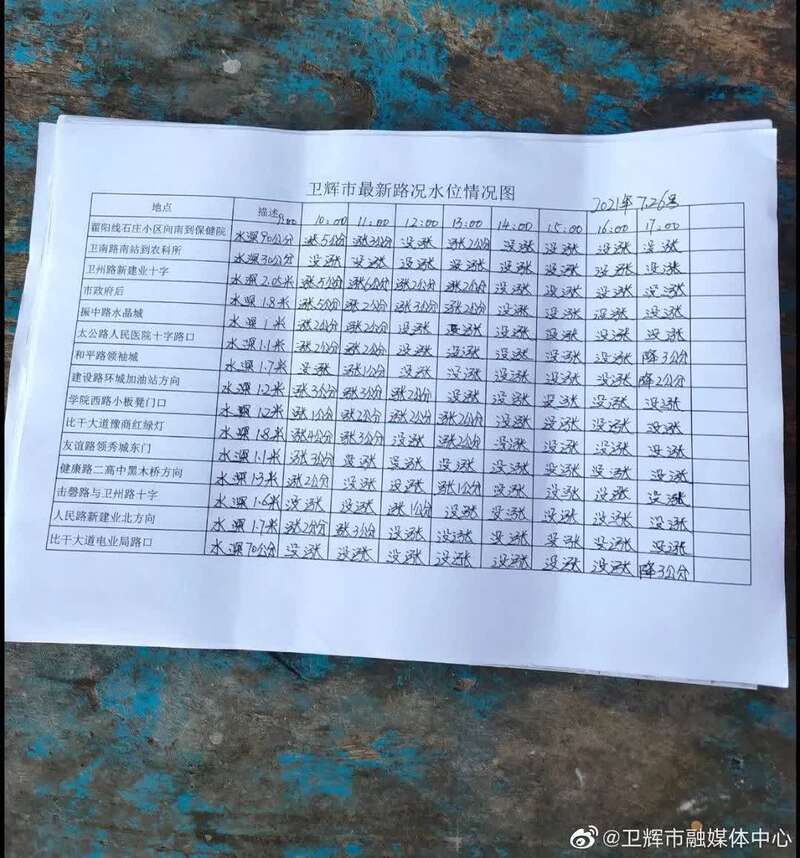 卫辉市最新路况水位情况图
2021年 7.26号
地点 描述 9:00 10:00 11:00 12:00 13:00 14:00 15:00 16:00 17:00
霍阳线石庄小区向南到保健院 水深90公分 涨5公分 涨3公分 没涨 涨2公分 没涨 没涨 没涨 没涨
卫南路南站到农科所 水深30公分 没涨 没涨 没涨 没涨 没涨 没涨 没涨 没涨
卫州路新建业十字 水深2.05米 涨5公分 涨6公分 涨2公分 涨2公分 没涨 没涨 没涨 没涨
市政府后 水深1.8米 涨5公分 涨2公分 涨3公分 涨2公分 没涨 没涨 没涨 没涨
振中路水晶城 水深1米 涨2公分 涨2公分 没涨 没涨 没涨 没涨 没涨 没涨
太公路人民医院十字路口 水深1.1米 涨2公分 涨2公分 没涨 没涨 没涨 没涨 没涨 降3公分
和平路领袖城 水深1.7米 没涨 涨1公分 没涨 没涨 没涨 没涨 没涨 降2公分
建设路环城加油站方向 水深1.2米 涨3公分 涨3公分 涨2公分 没涨 没涨 没涨 没涨 没涨
学院西路小板凳门口 水深1.2米 涨1公分 涨2公分 涨2公分 涨2公分 没涨 没涨 没涨 没涨
比干大道豫商红绿灯 水深1.8米 涨4公分 涨3公分 没涨 涨2公分 没涨 没涨 没涨 没涨
友谊路领秀城东门 水深1.1米 涨3公分 没涨 没涨 没涨 没涨 没涨 没涨 没涨
健康路二高中黑木桥方向 水深1.3米 涨2公分 没涨 没涨 涨1公分 没涨 没涨 没涨 没涨
击磬路与卫州路十字 水深1.6米 没涨 没涨 涨1公分 没涨 没涨 没涨 没涨 没涨
人民路新建业北方向 水深1.7米 涨2公分 涨3公分 没涨 没涨 没涨 没涨 没涨 没涨
比干大道电业局路口 水深70公分 没涨 没涨 没涨 没涨 没涨 没涨 没涨 降3公分
@卫辉市融媒体中心